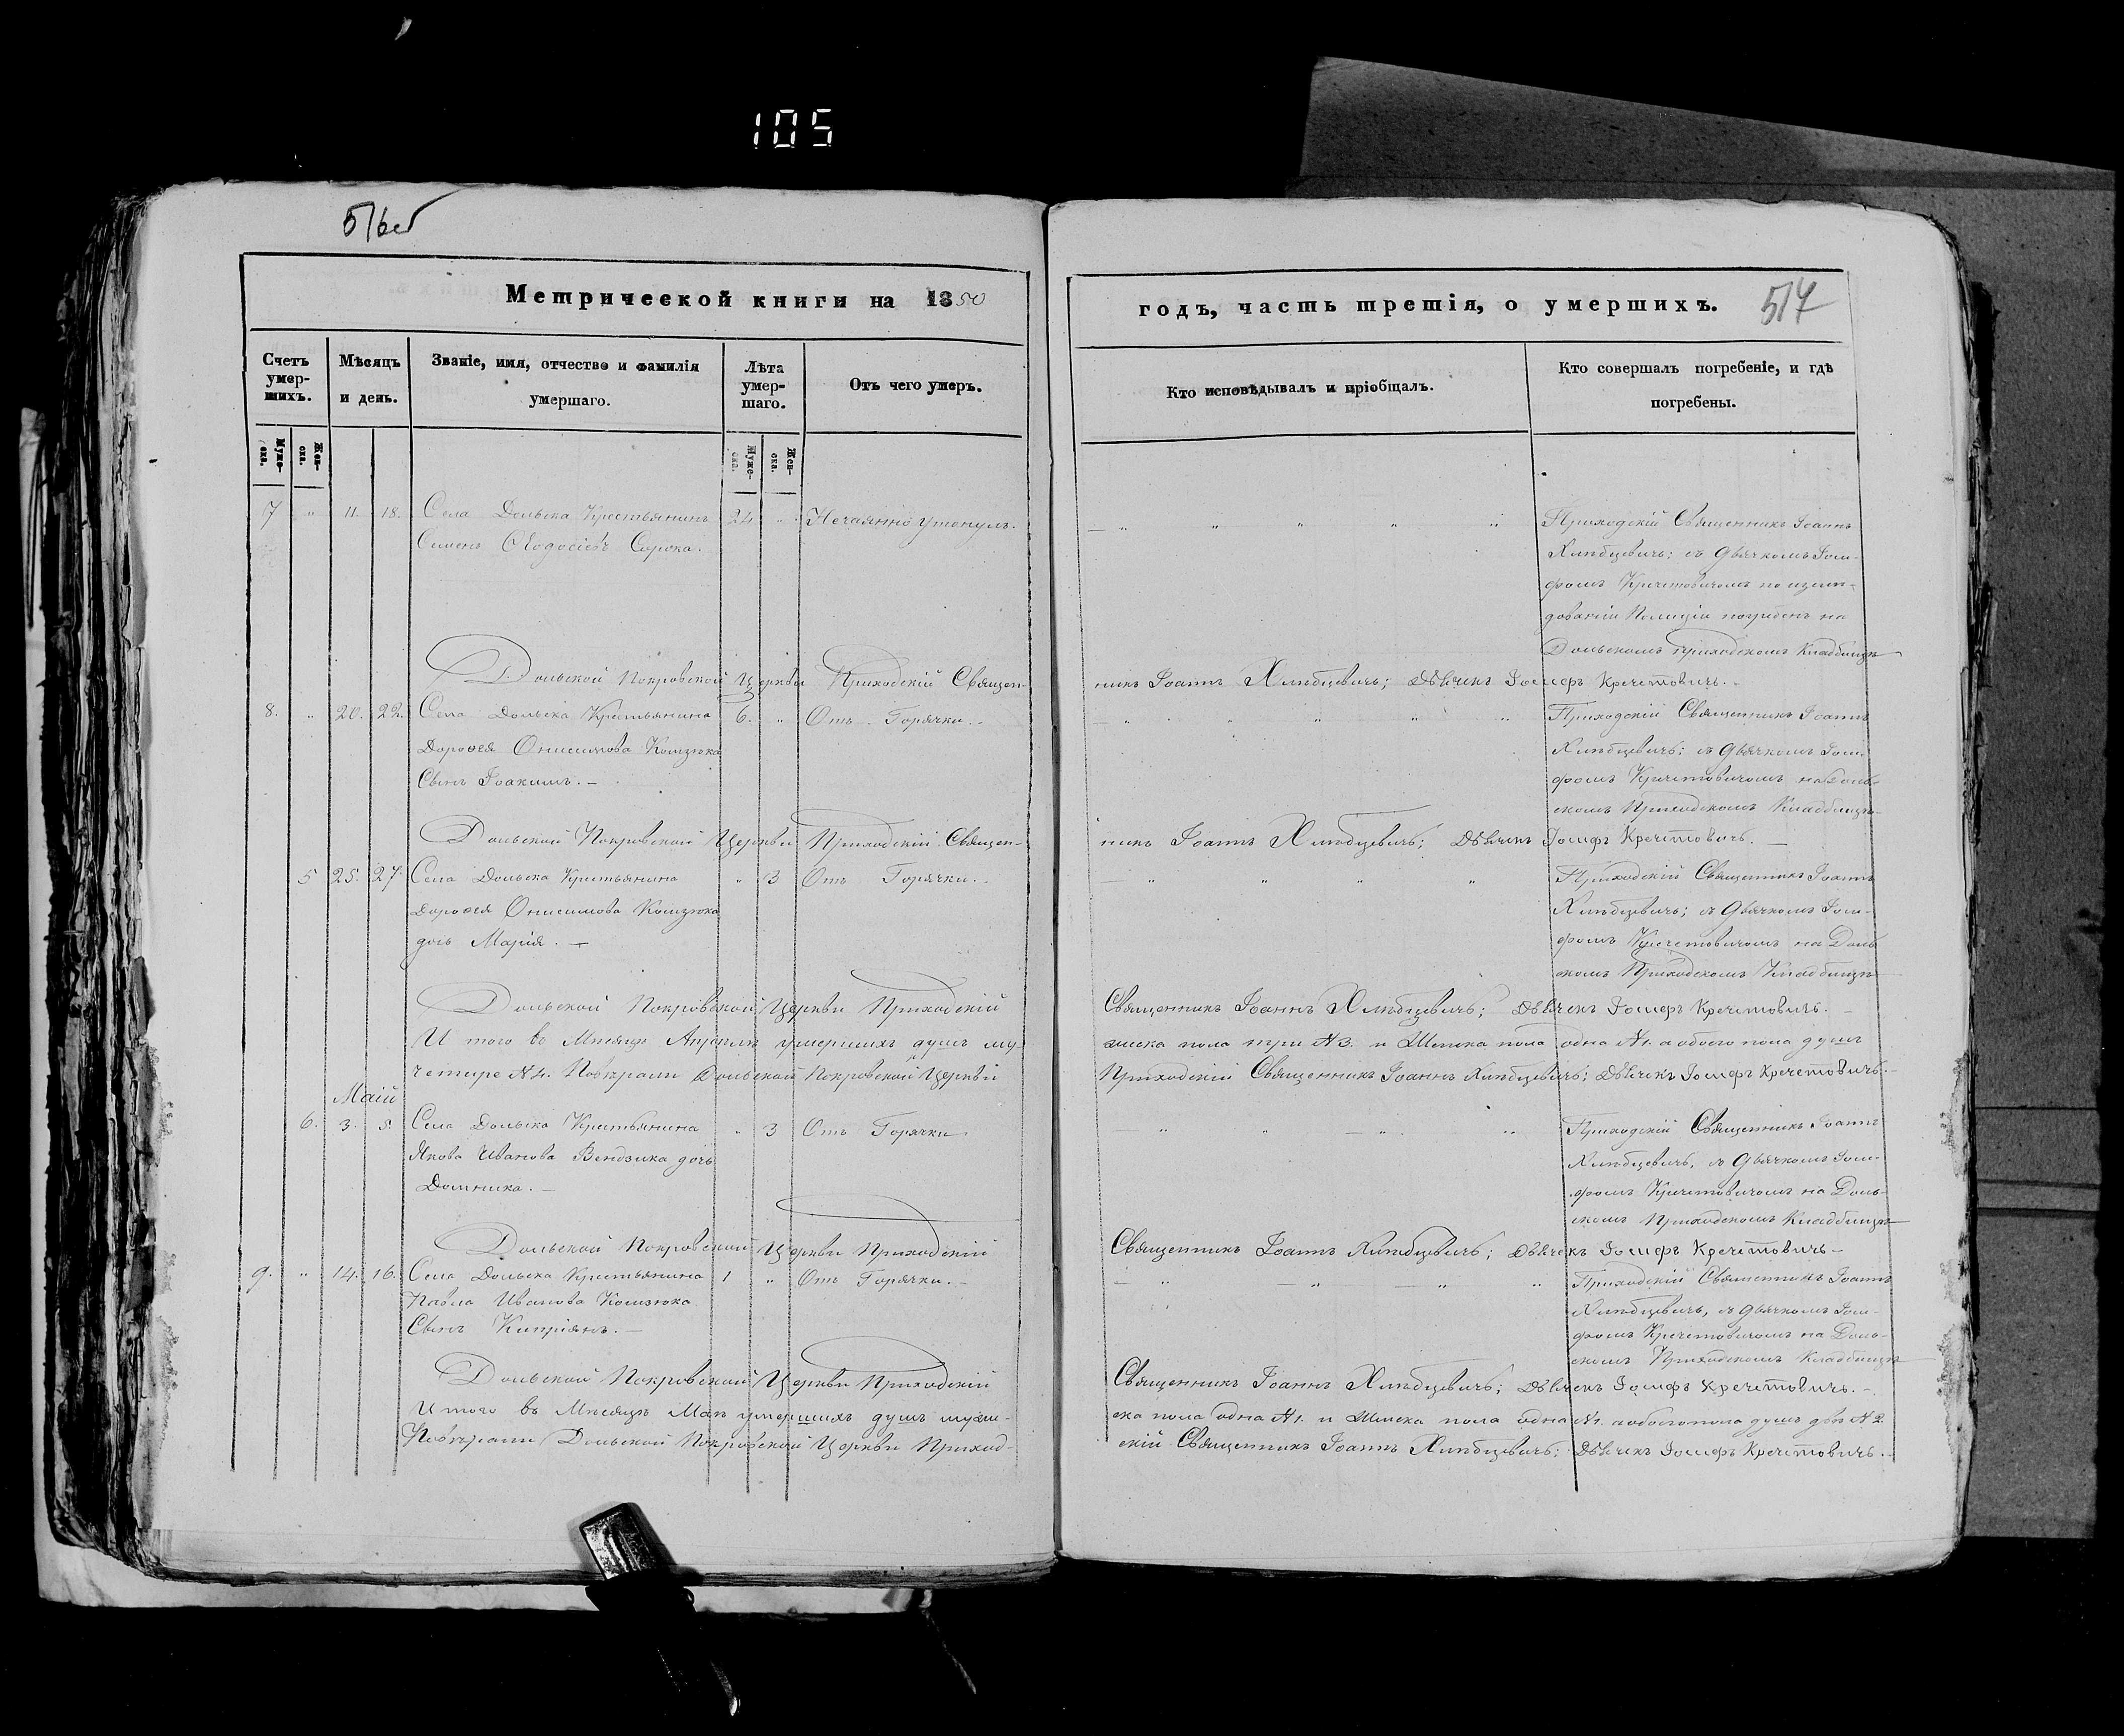 105
516об
Метрической книги на 1850
годъ, часть третія, о умершихъ.
517
Счетъ умер-шихъ.
Мѣсяцъ и день.
Званіе, имя, отчество и фамилія умершаго.
Лѣта умер-шаго.
Отъ чего умеръ.
Кто исповѣдывалъ и пріобщалъ.
Кто совершалъ погребеніе, и гдѣ погребены.
Муже-ска.
Жен-ска.
Муже-ска.
Жен-ска.
7 " 11. 18. Села Дольска Крестьянинъ 24 " Нечаянно утонулъ.
Семенъ Ѳеодосіевъ Сорока.
Приходскій Священникъ Іоаннъ
Хлѣбцевичъ; съ дьячкомъ Іоси-
фомъ Кречетовичомъ по изслѣ-
дованіи Полиціи погребенъ на
Дольскомъ приходскомъ Кладбищѣ
Дольской Покровской Церкви Приходскій Священ-
никъ Іоаннъ Хлѣбцевичъ; Дьячекъ Іосифъ Кречетовичъ.
8. " 20. 22. Села Дольска Крестьянина 6. " Отъ Горячки.
Дорофея Онисимова Комзюка
Сынъ Іоакимъ.
Приходскій Священникъ Іоаннъ
Хлѣбцевичъ; съ дьячкомъ Іоси-
фомъ Кречетовичомъ на Доль-
скомъ Приходскомъ Кладбищѣ
Дольской Покровской Церкви Приходскій Священ-
никъ Іоаннъ Хлѣбцевичъ; Дьячекъ Іосифъ Кречетовичъ.
5 25. 27. Села Дольска Крестьянина " 3 Отъ Горячки.
Дорофея Онисимова Комзюка
дочь Марія.
Приходскій Священникъ Іоаннъ
Хлѣбцевичъ; съ дьячкомъ Іоси-
фомъ Кречетовичомъ на Доль
скомъ Приходскомъ Кладбищѣ
Дольской Покровской Церкви Приходскій
Священникъ Іоаннъ Хлѣбцевичъ; Дьячекъ Іосифъ Кречетовичъ.
И того въ Мѣсяцѣ Апрелѣ умершихъ душъ му-
жеска пола три №3. и Женска пола одна №1. а обоего пола душъ
четыре №4. Повѣрали Дольской Покровской Церкви
Приходскій Священникъ Іоаннъ Хлѣбцевичъ; Дьячекъ Іосифъ Кречетовичъ.
Маій
6. 3. 5. Села Дольска Крестьянина " 3 Отъ Горячки
Якова Иванова Вендзика дочь
Домника.
Приходскій Священникъ Іоаннъ
Хлѣбцевичъ, съ дьячкомъ Іоси-
фомъ Кречетовичомъ на Доль-
скомъ Приходскомъ Кладбищѣ
Дольской Покровской Церкви Приходскій
Священникъ Іоаннъ Хлѣбцевичъ; Дьячекъ Іосифъ Кречетовичъ
9. " 14. 16. Села Дольска Крестьянина 1 " Отъ Горячки.
Павла Иванова Комзюка
Сынъ Кипріянъ.
Приходскій Священникъ Іоаннъ
Хлѣбцевичъ, съ дьячкомъ Іоси-
фомъ Кречетовичомъ на Доль-
скомъ Приходскомъ Кладбищѣ
Дольской Покровской Церкви Приходскій
Священникъ Іоаннъ Хлѣбцевичъ; Дьячекъ Іосифъ Кречетовичъ.
И того въ Мѣсяцѣ Маѣ умершихъ душъ муже-
ска пола одна №1. и Женска пола одна №1. а обоего пола душъ двѣ №2.
Повѣрали Дольской Покровской Церкви Приход-
скій Священникъ Іоаннъ Хлѣбцевичъ; Дьячекъ Іосифъ Кречетовичъ.